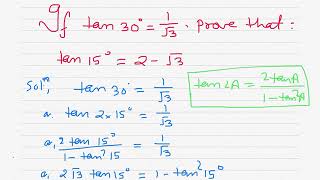 If tan 30° = 1/√3 . prove that :
tan 15° = 2 - √3
Solⁿ, tan 30° = 1/√3
tan 2A = 2tanA / 1 - tan²A
a, tan 2×15° = 1/√3
a, 2 tan 15° / 1 - tan²15 = 1/√3
a, 2√3 tan 15° = 1 - tan²15°